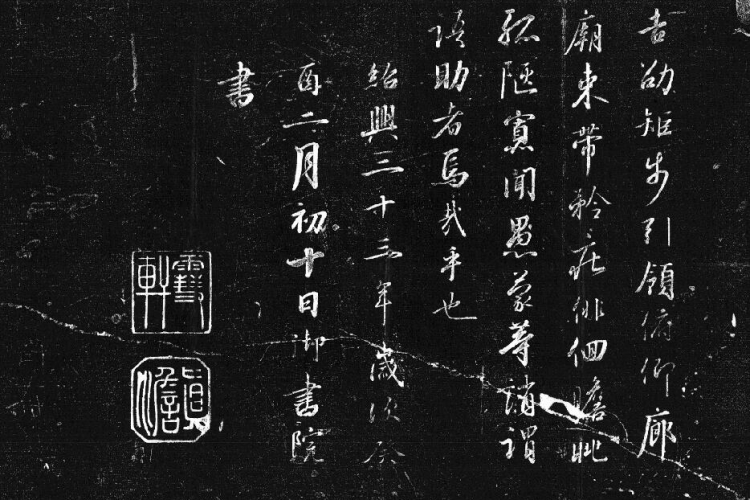 吉劭矩步引領俯仰廊
廟束帶矜庄俳佪瞻眺
孤陋寡聞愚蒙等誚謂
語助者焉哉乎也
紹興三十三年歲次癸
酉二月初十日御書院
書